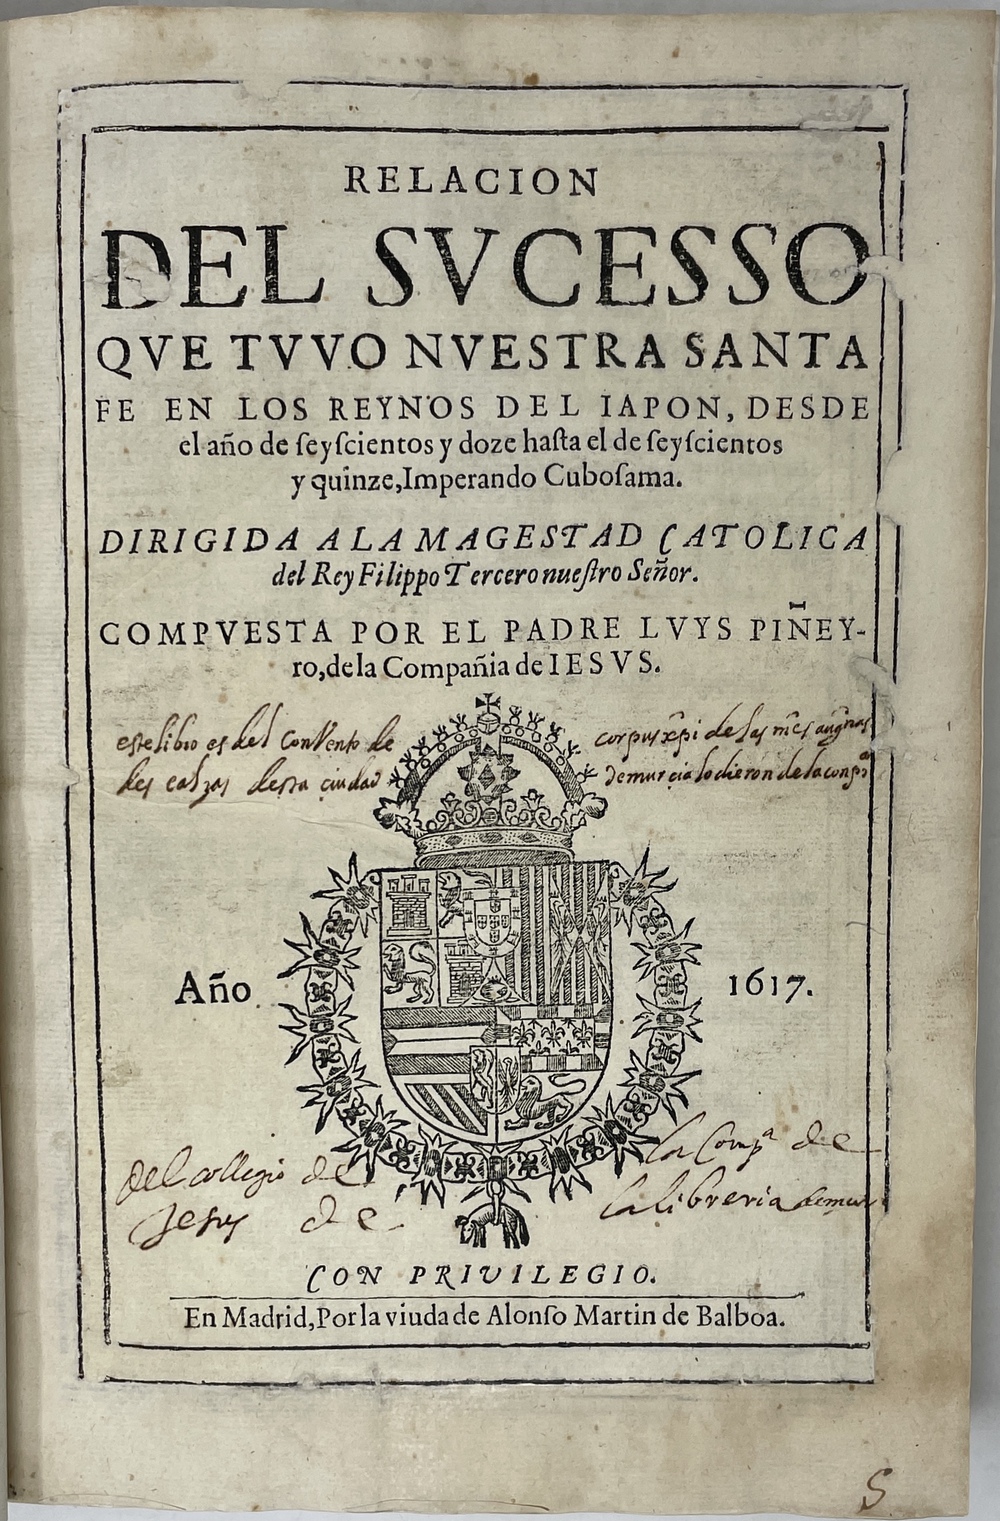 RELACION
DEL SVCESSO
QVE TVVO NVESTRA SANTA
FE EN LOS REYNOS DEL IAPON, DESDE
el año de ſeyſcientos y doze haſta el de ſeyſcientos
y quinze, Imperando Cuboſama.
DIRIGIDA A LA MAGESTAD CATOLICA
del Rey Filippo Tercero nueſtro Señor.
COMPVESTA POR EL PADRE LVYS PIÑEY-
ro, de la Compañia de IESVS.
este libro es del Convento de corpus xp̄i de las m̄es
des calzas desta ciudad de murcia lo dieron de la
Año 1617.
del collegio de la Compᵃ de
Jesus de la libreria
CON PRIVILEGIO.
En Madrid, Por la viuda de Alonſo Martin de Balboa.
S